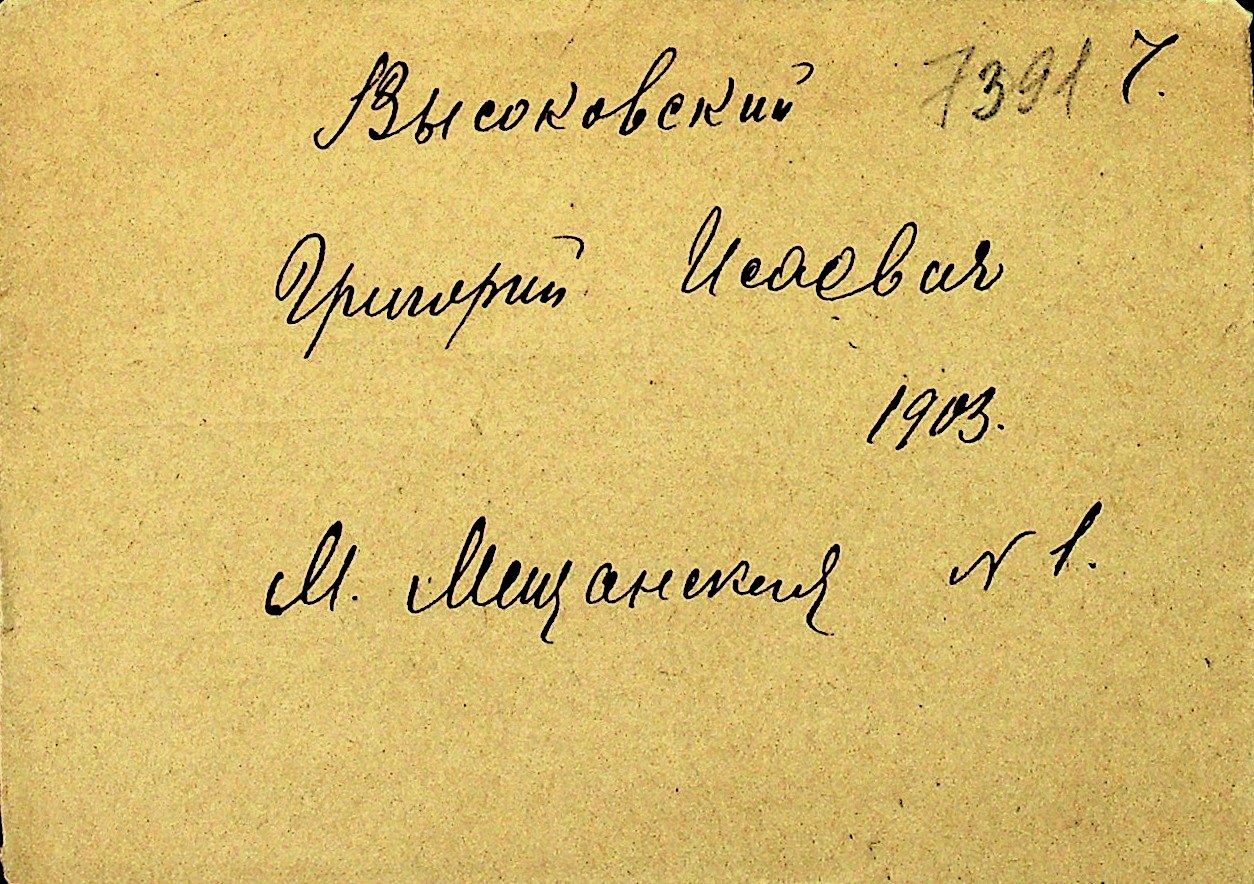 Высоковский 7391 7.
Григорий Исаевич
1903.
М. Мещанская N 1.